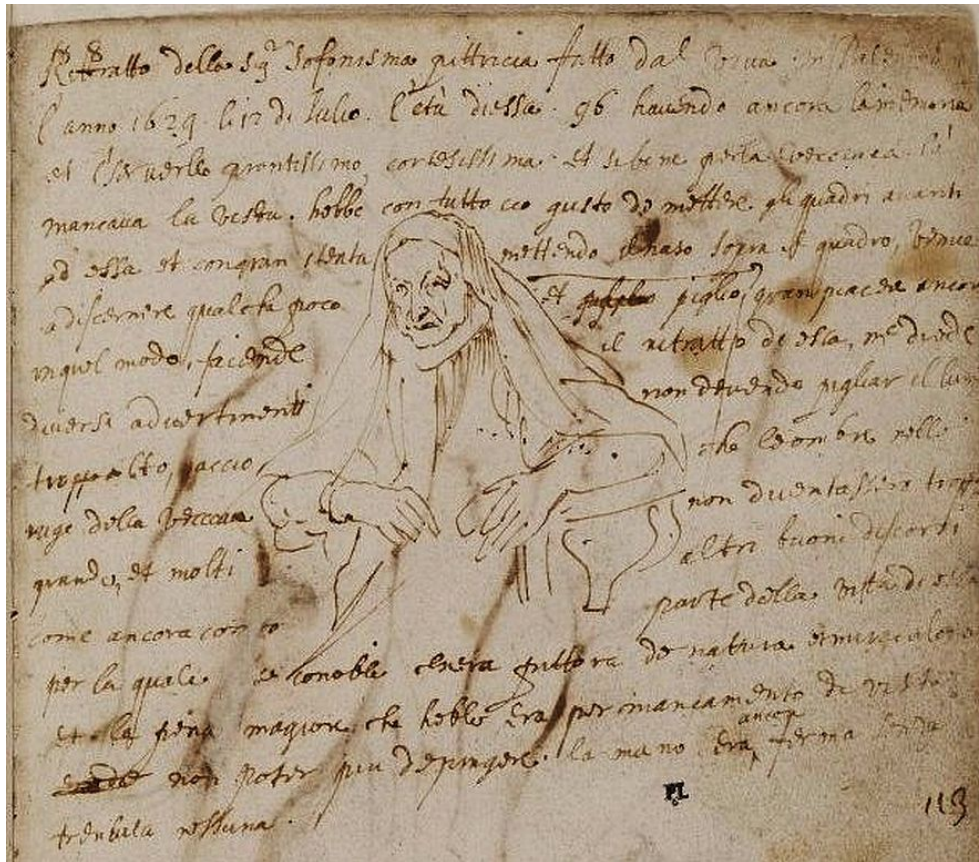 Rittratto della Sigra Sofonisma pittricia fatto dal vivo in Palermo
l'anno 1629 li 12 di Julio. l'età di essa 96 havendo ancora la memoria
et il serverllo prontissimo, cortesissima et sebene per la vecciaia li
mancava la vista. hebbe con tutto cio gusto de mettere gli quadri avanti
ad essa et con gran stenta mettendo il naso sopra il quadro, venne
a discernere qualche poco et piglio gran piacere ancora
in quel modo, facendo il ritratto de essa, me diede
diversi advertimenti non devendo pigliar il lume
troppo alto, accio che le ombre nelle
ruge della vecciaia non diventassero troppo
grande, et molti altri buoni discorsi
come ancora conto parte della vita di essa
per la quale se conobbe chera pittora de natura et miraculosa
et la pena magiore che hebbe era per mancamento di vista
non poter piu depingere. la mano era ancora ferma senza
tremula nessuna.
PL
113